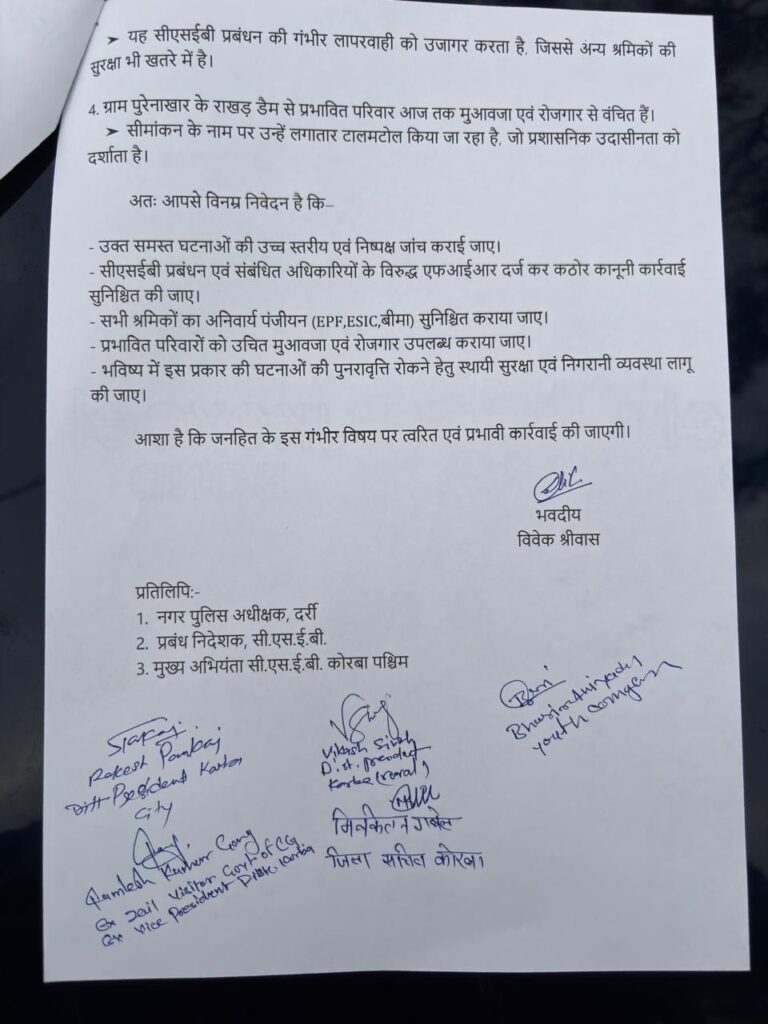 ➤ यह सीएसईबी प्रबंधन की गंभीर लापरवाही को उजागर करता है, जिससे अन्य श्रमिकों की
सुरक्षा भी खतरे में है।
4. ग्राम पुरेनाखार के राखड़ डैम से प्रभावित परिवार आज तक मुआवजा एवं रोजगार से वंचित हैं।
➤ सीमांकन के नाम पर उन्हें लगातार टालमटोल किया जा रहा है, जो प्रशासनिक उदासीनता को
दर्शाता है।
अतः आपसे विनम्र निवेदन है कि–
- उक्त समस्त घटनाओं की उच्च स्तरीय एवं निष्पक्ष जांच कराई जाए।
- सीएसईबी प्रबंधन एवं संबंधित अधिकारियों के विरुद्ध एफआईआर दर्ज कर कठोर कानूनी कार्रवाई
सुनिश्चित की जाए।
- सभी श्रमिकों का अनिवार्य पंजीयन (EPF,ESIC,बीमा) सुनिश्चित कराया जाए।
- प्रभावित परिवारों को उचित मुआवजा एवं रोजगार उपलब्ध कराया जाए।
- भविष्य में इस प्रकार की घटनाओं की पुनरावृत्ति रोकने हेतु स्थायी सुरक्षा एवं निगरानी व्यवस्था लागू
की जाए।
आशा है कि जनहित के इस गंभीर विषय पर त्वरित एवं प्रभावी कार्रवाई की जाएगी।
भवदीय
विवेक श्रीवास
प्रतिलिपि:-
1. नगर पुलिस अधीक्षक, दर्री
2. प्रबंध निदेशक, सी.एस.ई.बी.
3. मुख्य अभियंता सी.एस.ई.बी. कोरबा पश्चिम
Rakesh Pankaj
Distt President Korba
City
Vikash Singh
Dist. President
Korba (rural)
youth congress
जिला सचिव कोरबा
Kumar Garg
Ex Jail Visitor Govt of CG
Ex Vice President Korba